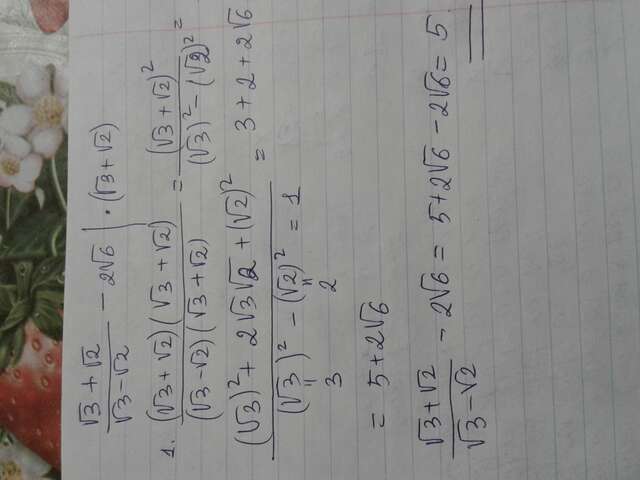 (√3 + √2)/(√3 − √2) − 2√6 | · (√3 + √2)
1. ((√3 + √2)(√3 + √2))/((√3 − √2)(√3 + √2)) = (√3 + √2)²/((√3)² − (√2)²) =
((√3)² + 2√3√2 + (√2)²)/((√3)² − (√2)² = 1) = 3 + 2 + 2√6
= =
3 2
= 5 + 2√6
(√3 + √2)/(√3 − √2) − 2√6 = 5 + 2√6 − 2√6 = 5